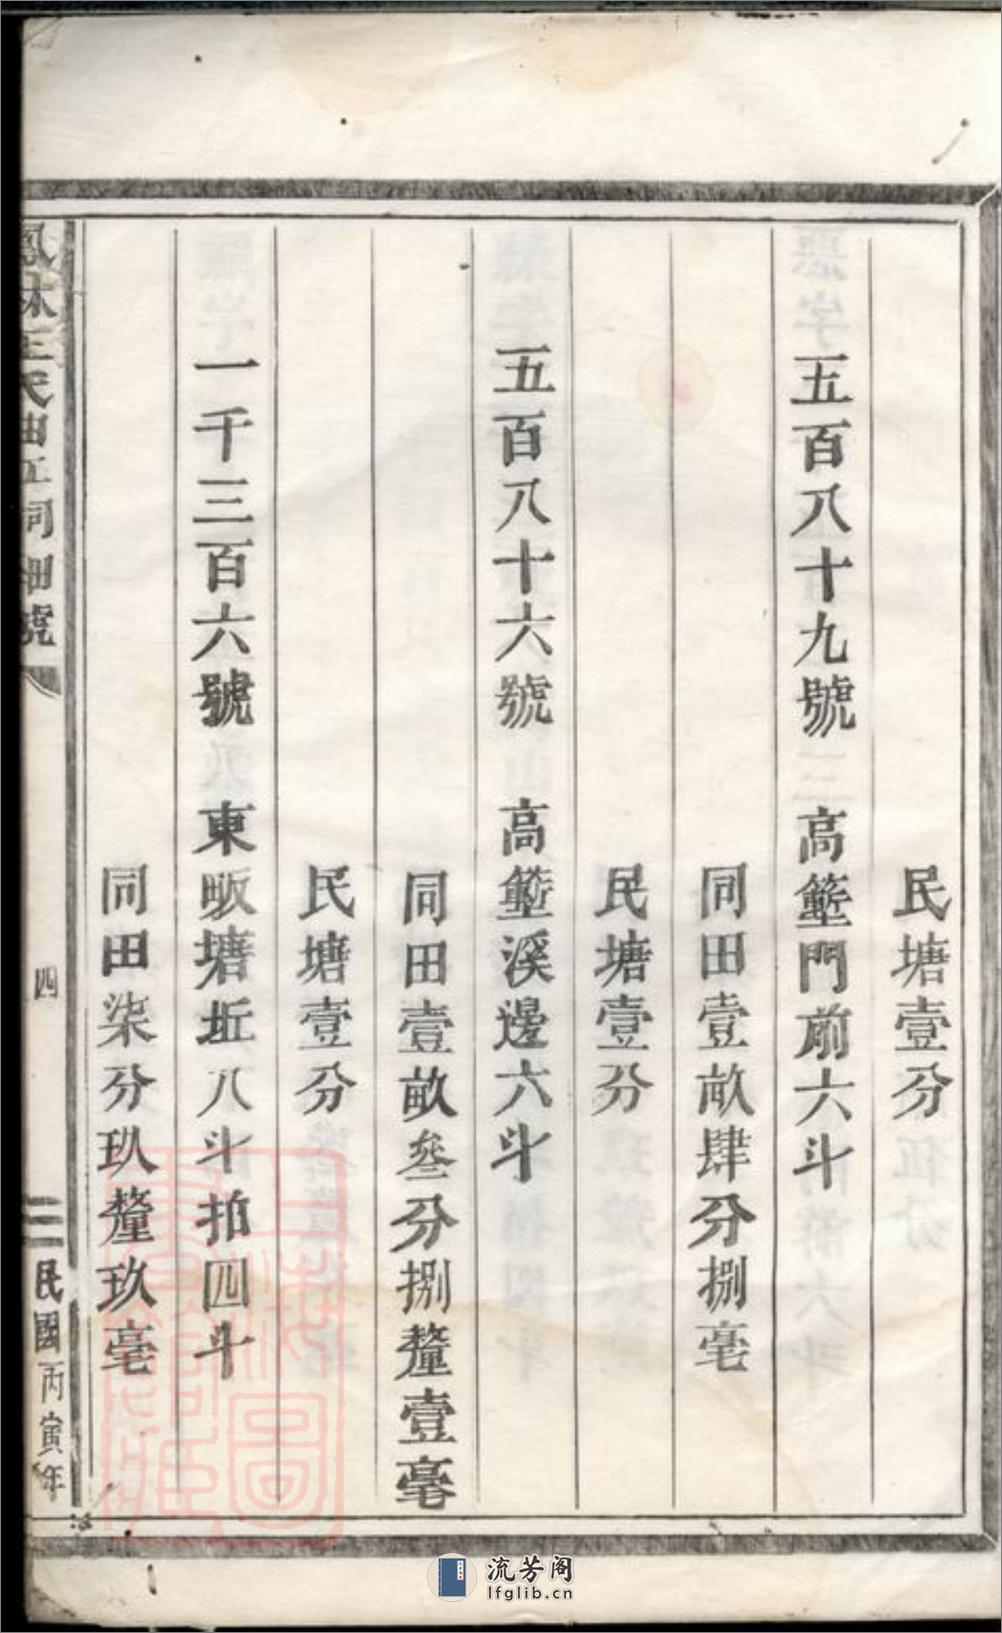 民塘壹分
五百八十九號 高蓥門前六斗
同田壹畝肆分捌毫
民塘壹分
五百八十六號 高蓥溪邊六斗
同田壹畝叁分捌釐壹毫
民塘壹分
一千三百六號 東畈塘坵八斗拍四斗
同田柒分玖釐玖毫
鳳林王氏 祠 號
四
民國丙寅年
流芳阁
lfglib.cn